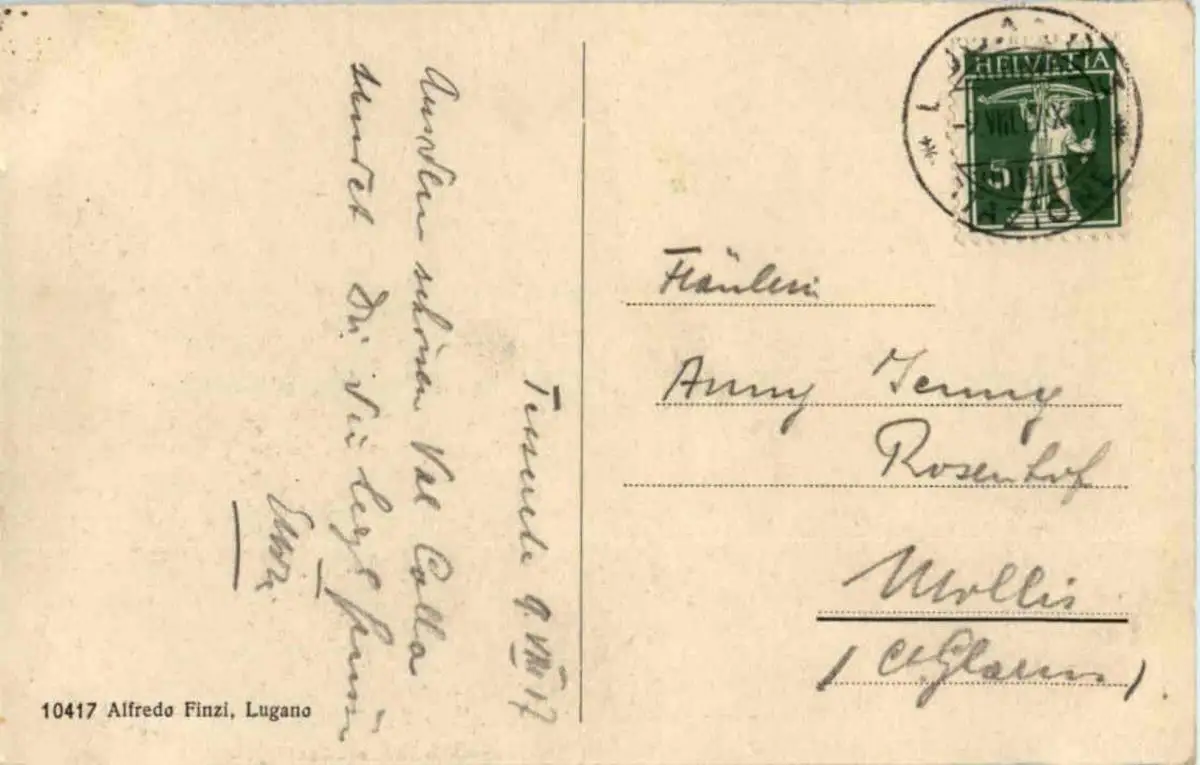 Tesserete 9. VIII 17
Aus dem schönen Val Colla
sendet Dir viele herzl. Grüsse
Fräulein
Anny Jenny
Rosenhof
Mollis
(Ct. Glarus)
HELVETIA
5
10417 Alfredo Finzi, Lugano